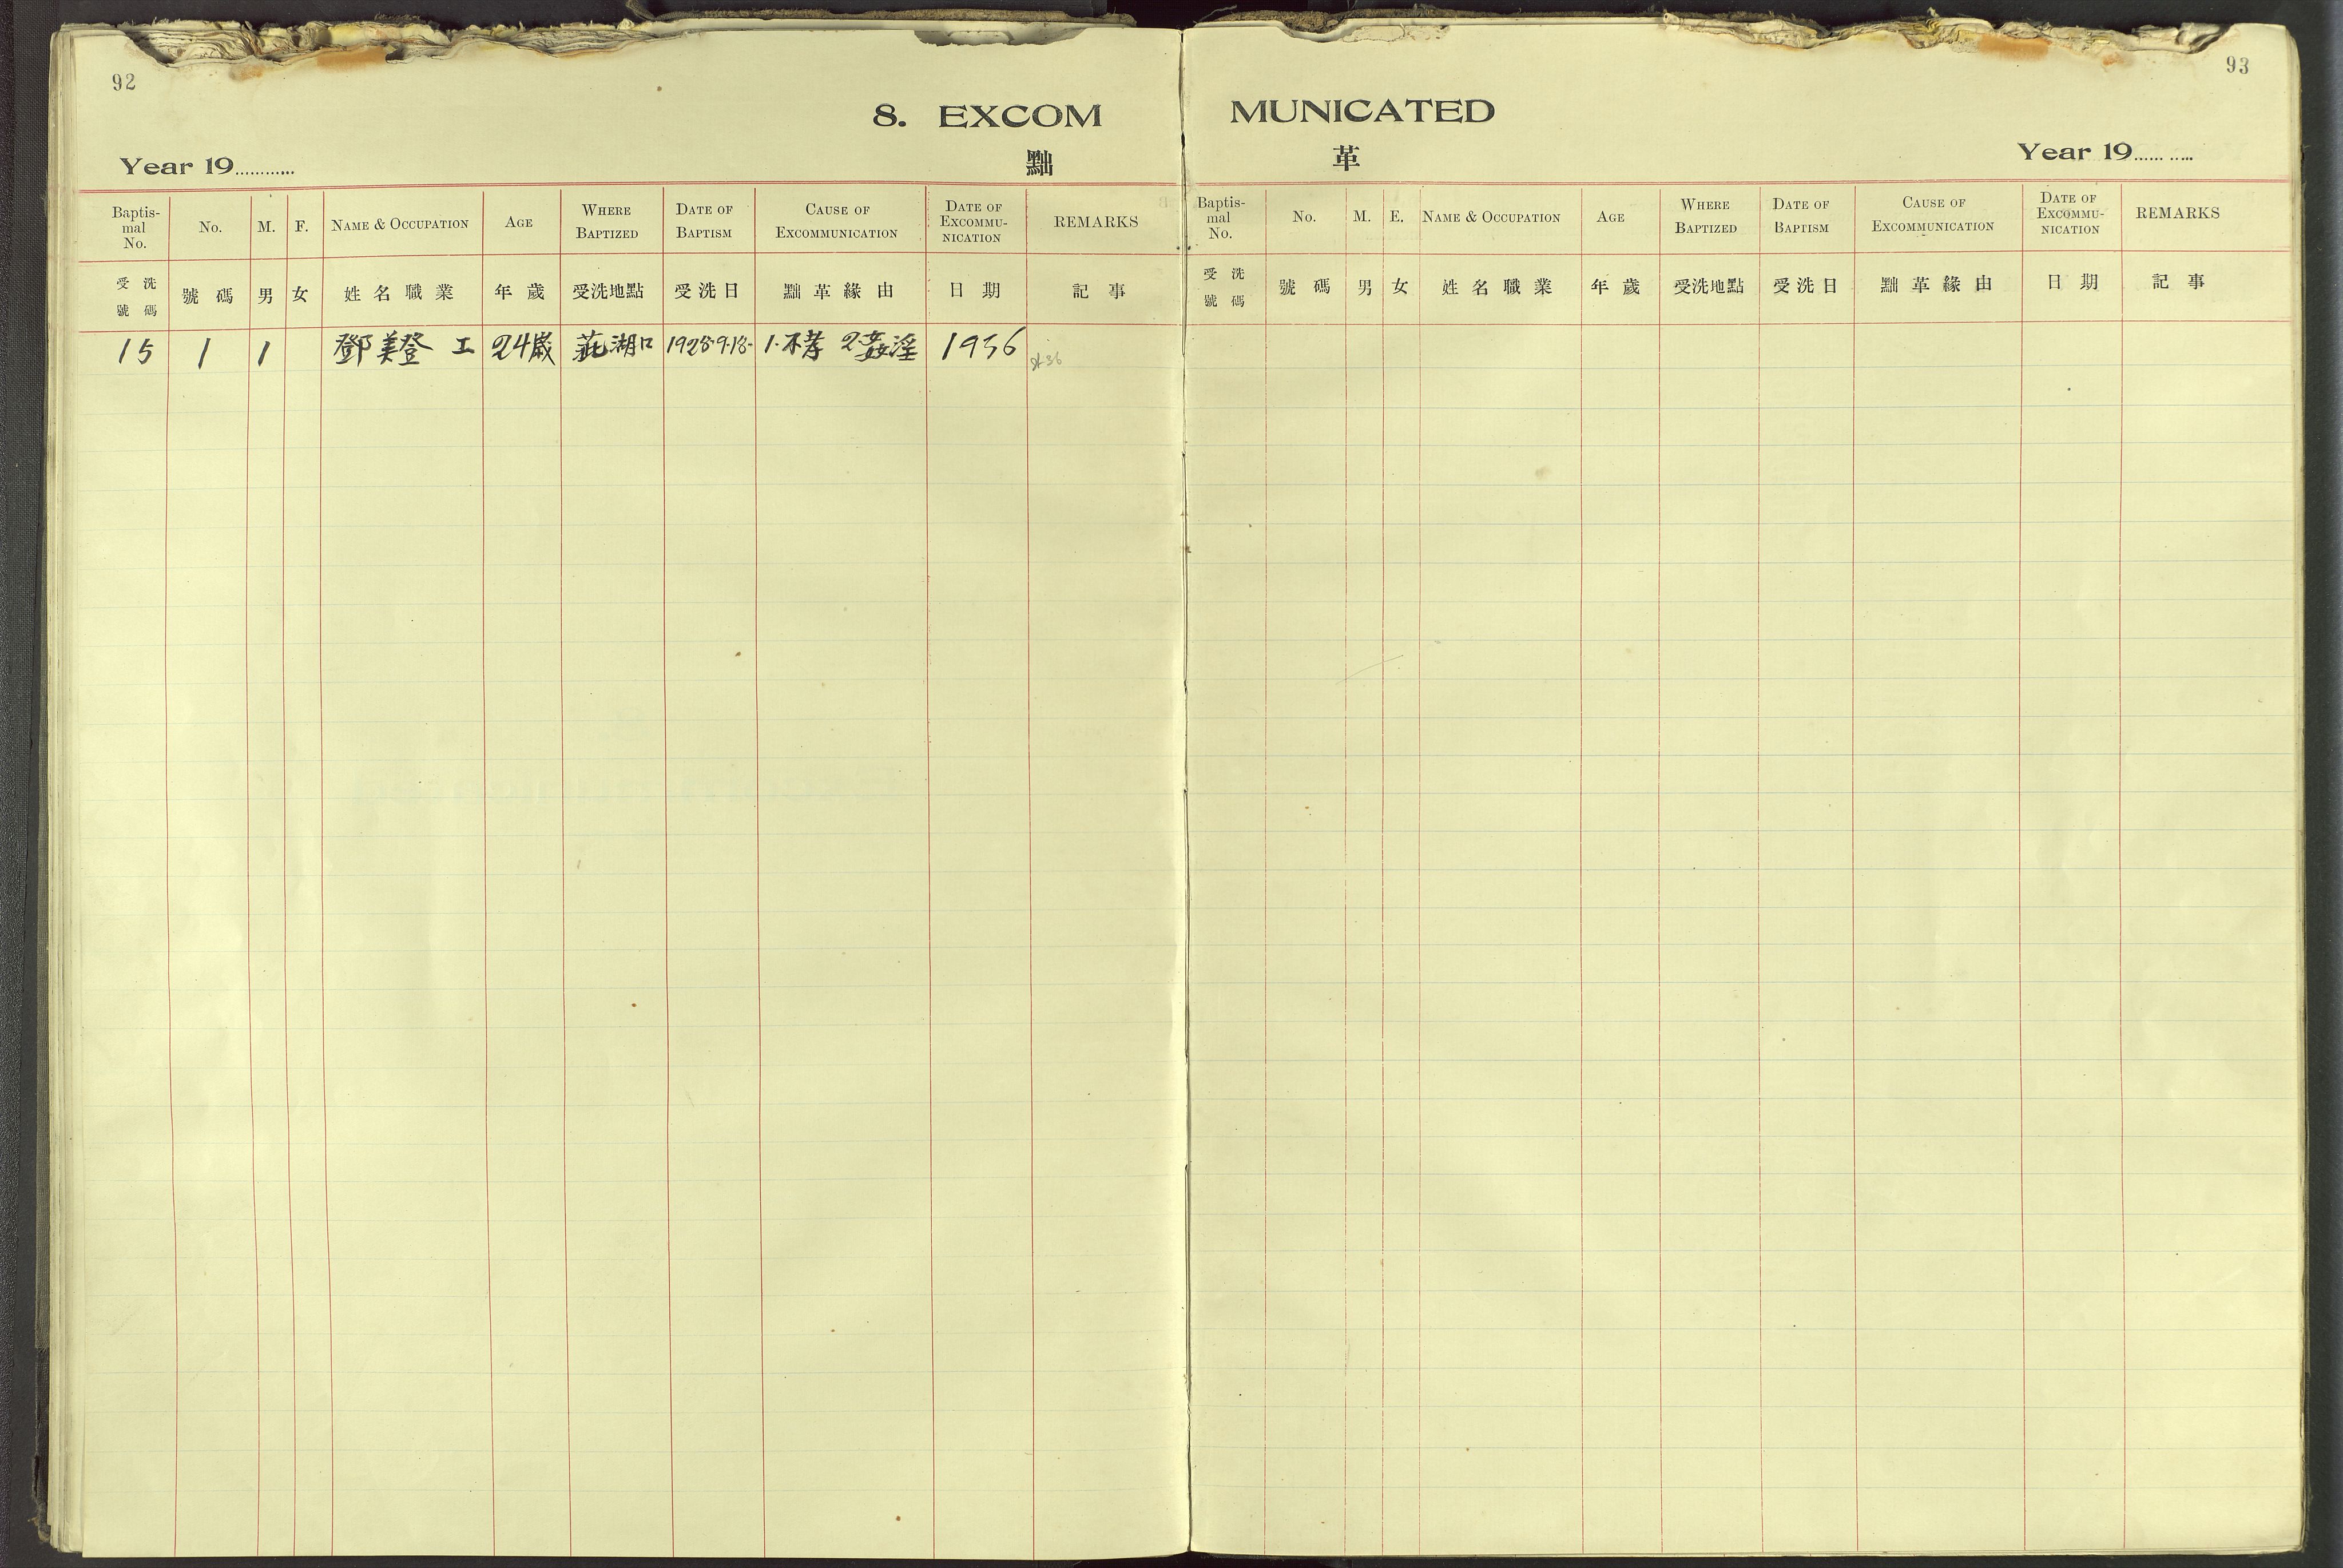 92
8. EXCOM
Year 19............
黜
Baptis-mal No. No. M. F. NAME & OCCUPATION AGE WHERE BAPTIZED DATE OF BAPTISM CAUSE OF EXCOMMUNICATION DATE OF EXCOMMU-NICATION REMARKS
受洗號碼 號碼 男 女 姓名職業 年歲 受洗地點 受洗日 黜革緣由 日期 記事
15 1 1 鄧美登 工 24歲 湖口 1928·9·18· 1·不孝 2姦淫 1936
93
MUNICATED
革
Year 19...........
Baptis-mal No. No. M. E. NAME & OCCUPATION AGE WHERE BAPTIZED DATE OF BAPTISM CAUSE OF EXCOMMUNICATION DATE OF EXCOMMU-NICATION REMARKS
受洗號碼 號碼 男 女 姓名職業 年歲 受洗地點 受洗日 黜革緣由 日期 記事